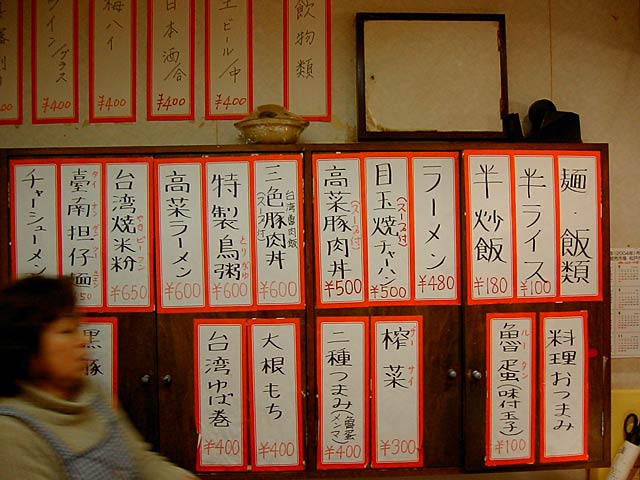 飲物類
ビール/中
¥400
日本酒/合
¥400
梅ハイ
¥400
イン/グラス
¥400
麺・飯類
半ライス
¥100
半炒飯
¥180
ラーメン
¥480
目玉焼チャーハン
(スープ付)
¥500
高菜豚肉丼
(スープ付)
¥500
三色豚肉丼
台湾魯肉飯
(スープ付)
¥600
特製鳥粥
とりがゆ
¥600
高菜ラーメン
¥600
台湾焼米粉
やきビーフン
¥650
臺南担仔麺
チャーシューメン
料理おつまみ
魯蛋(味付玉子)
ルータン
¥100
榨菜
ザーサイ
¥300
二種つまみ(魯蛋メンマ)
¥400
大根もち
¥400
台湾ゆば巻
¥400
黒豚